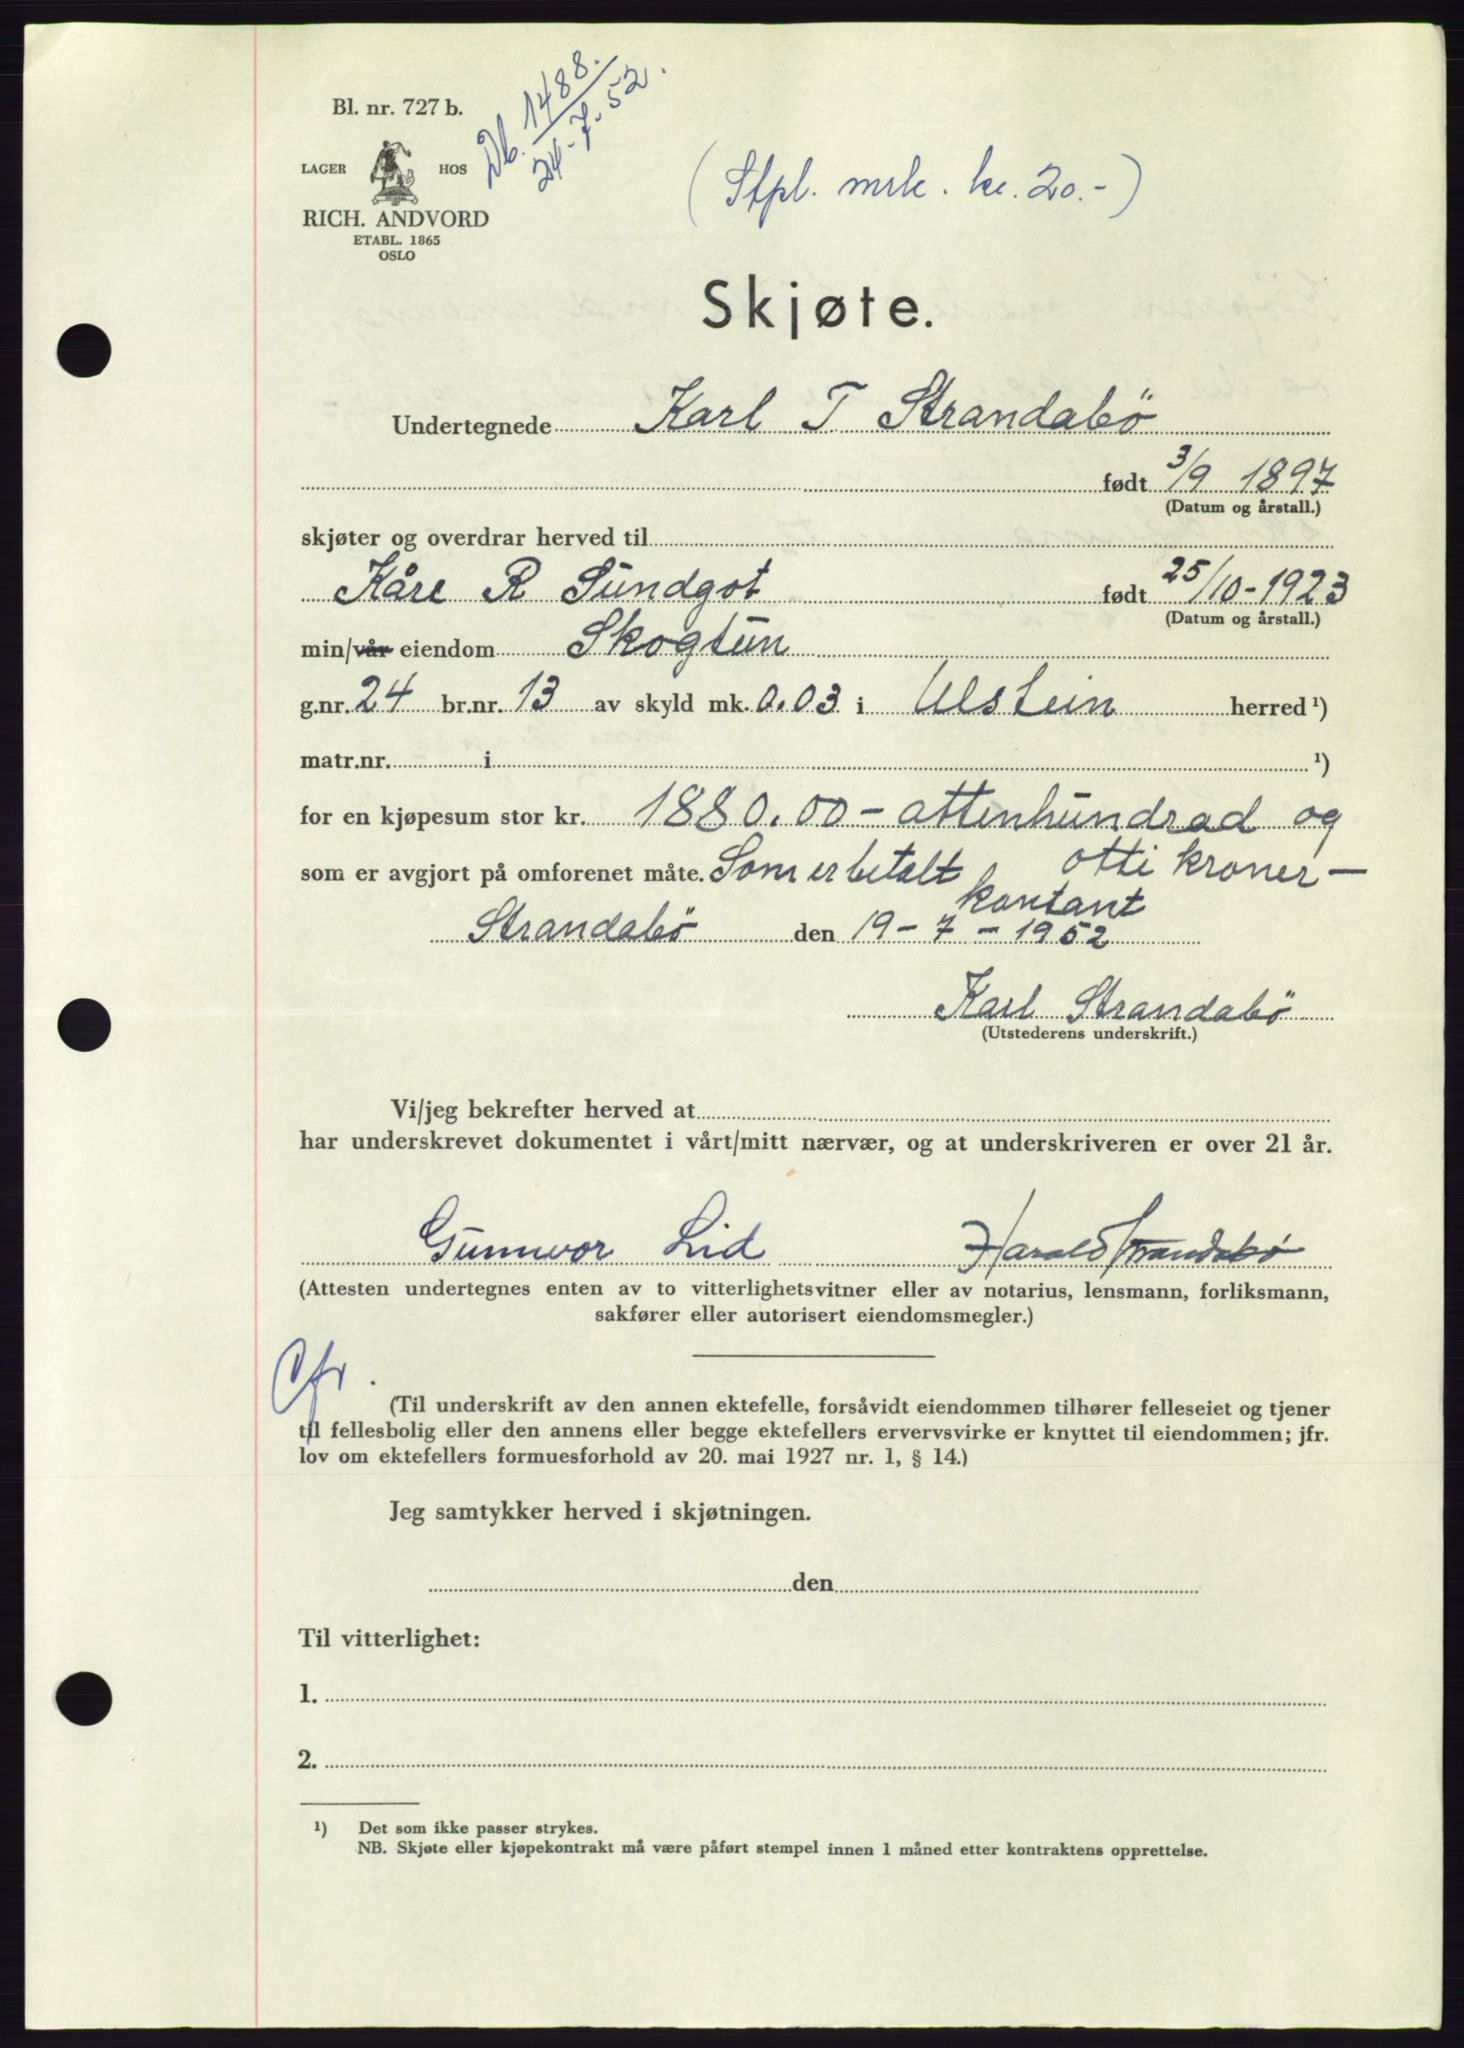 Bl. nr. 727 b.
Db. 1488.
24-7-52.
LAGER HOS
RICH. ANDVORD
ETABL. 1865
OSLO
(Stpl. mrk. kr. 20.-)
Skjøte.
Undertegnede Karl T Strandabö
født 3/9 1897
(Datum og årstall.)
skjøter og overdrar herved til
Kåre R Sundgot født 25/10-1923
(Datum og årstall.)
min/vår eiendom Skogtun
g.nr. 24 br.nr. 13 av skyld mk. 0.03 i Ulstein herred ¹)
matr.nr. i ¹)
for en kjøpesum stor kr. 1880.00 - attenhundrad og
som er avgjort på omforenet måte. Som er betalt otti kroner -
kontant
Strandabö den 19-7-1952
Karl Strandabö
(Utstederens underskrift.)
Vi/jeg bekrefter herved at
har underskrevet dokumentet i vårt/mitt nærvær, og at underskriveren er over 21 år.
Gunnvor Lid Harald Strandabö
(Attesten undertegnes enten av to vitterlighetsvitner eller av notarius, lensmann, forliksmann,
sakfører eller autorisert eiendomsmegler.)
Cfr.
(Til underskrift av den annen ektefelle, forsåvidt eiendommen tilhører felleseiet og tjener
til fellesbolig eller den annens eller begge ektefellers ervervsvirke er knyttet til eiendommen; jfr.
lov om ektefellers formuesforhold av 20. mai 1927 nr. 1, § 14.)
Jeg samtykker herved i skjøtningen.
den
Til vitterlighet:
1.
2.
¹) Det som ikke passer strykes.
NB. Skjøte eller kjøpekontrakt må være påført stempel innen 1 måned etter kontraktens opprettelse.